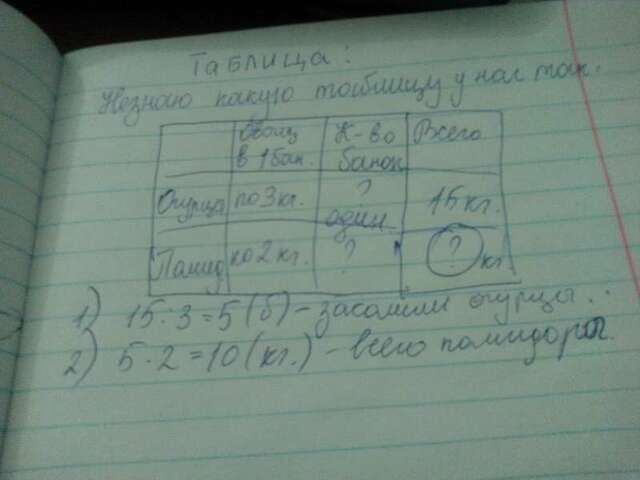 Таблица:
Незнаю какую таблицу у нас так.
Овощ в 1 бан. К-во банок Всего
Огурца по 3 кг. ? 15 кг.
один
Помид по 2 кг. ? ? кг
1) 15:3=5 (б) - засолили огурцы.
2) 5·2=10 (кг.) - всего помидоры.